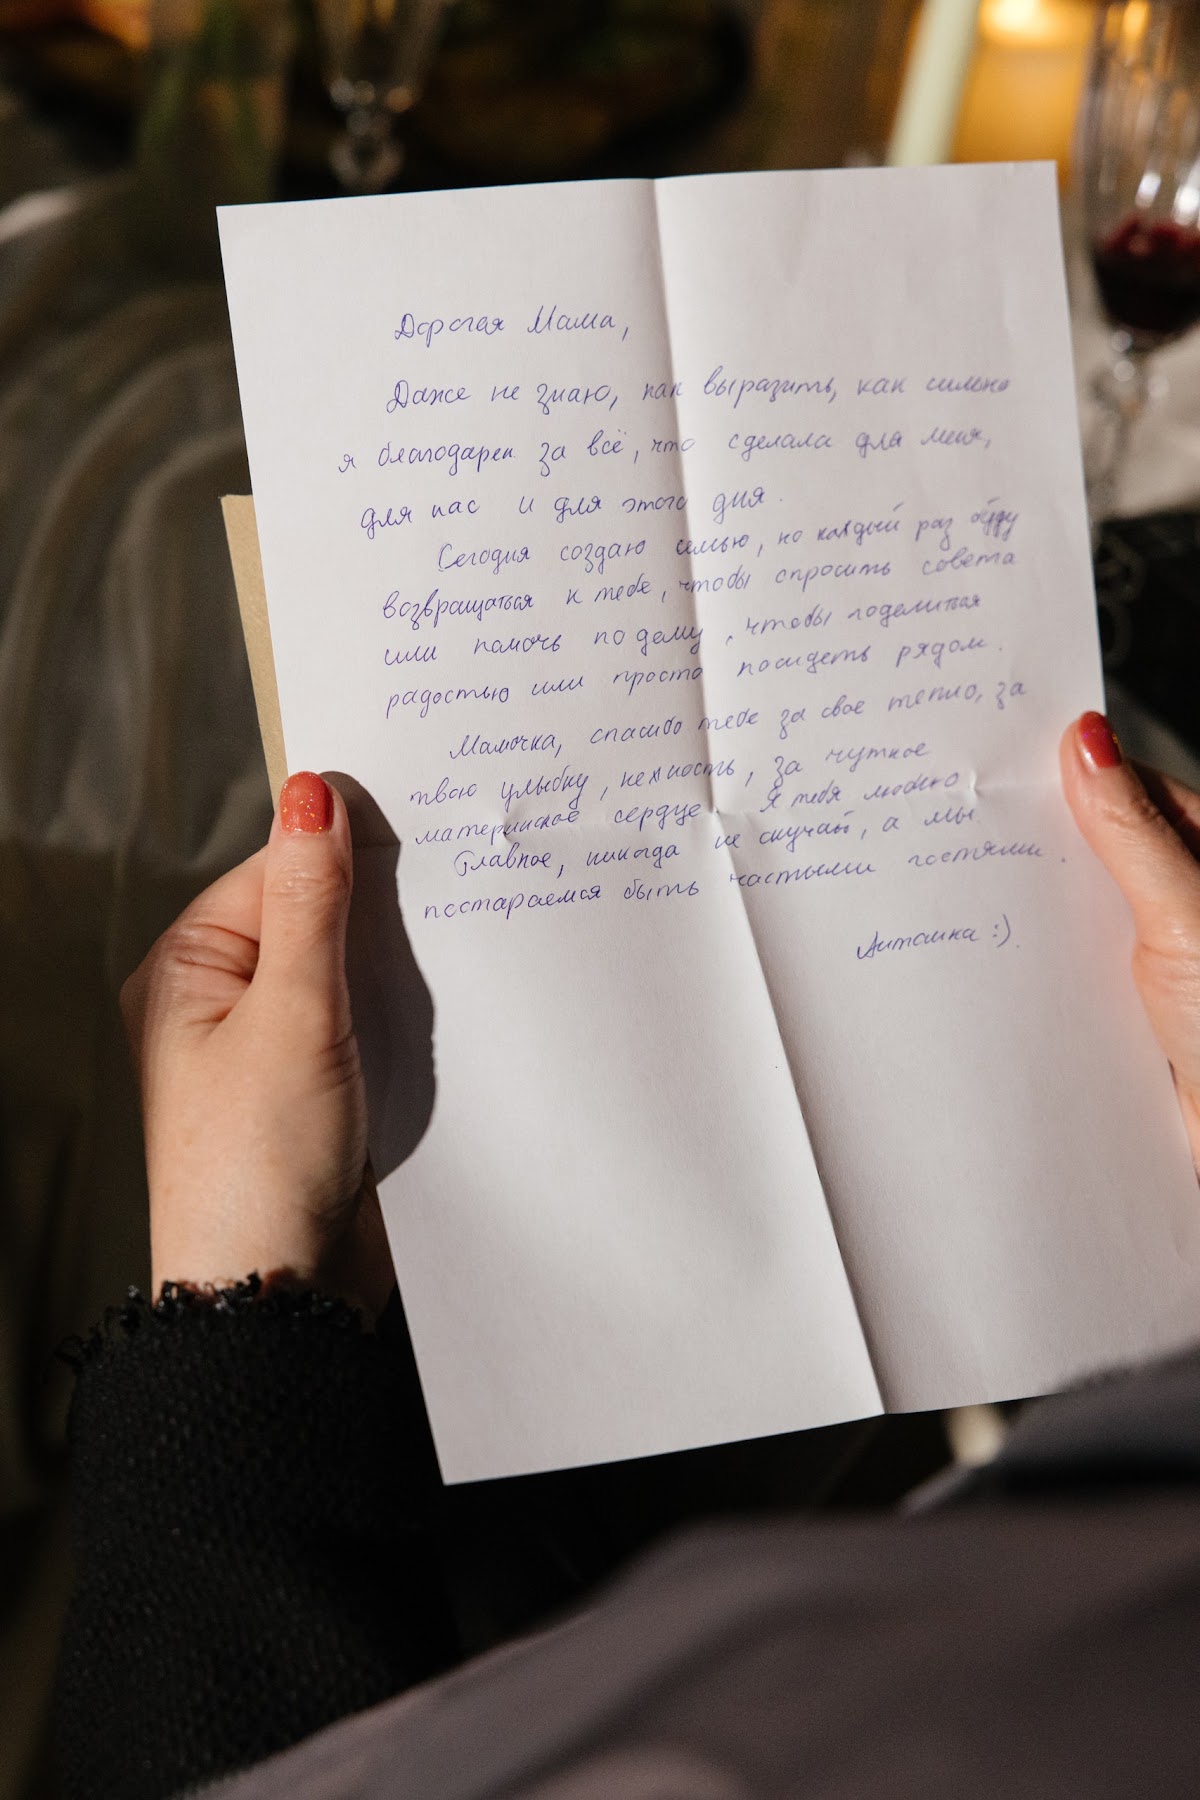 Дорогая Мама,
Даже не знаю, как выразить, как сильно
я благодарен за всё, что сделала для меня,
для нас и для этого дня.
Сегодня создаю семью, но каждый раз буду
возвращаться к тебе, чтобы спросить совета
или помочь по дому, чтобы поделиться
радостью или просто посидеть рядом.
Мамочка, спасибо тебе за свое тепло, за
твою улыбку, нежность, за чуткое
материнское сердце. Я тебя люблю
Главное, никогда не скучай, а мы
постараемся быть частыми гостями.
Антошка :)